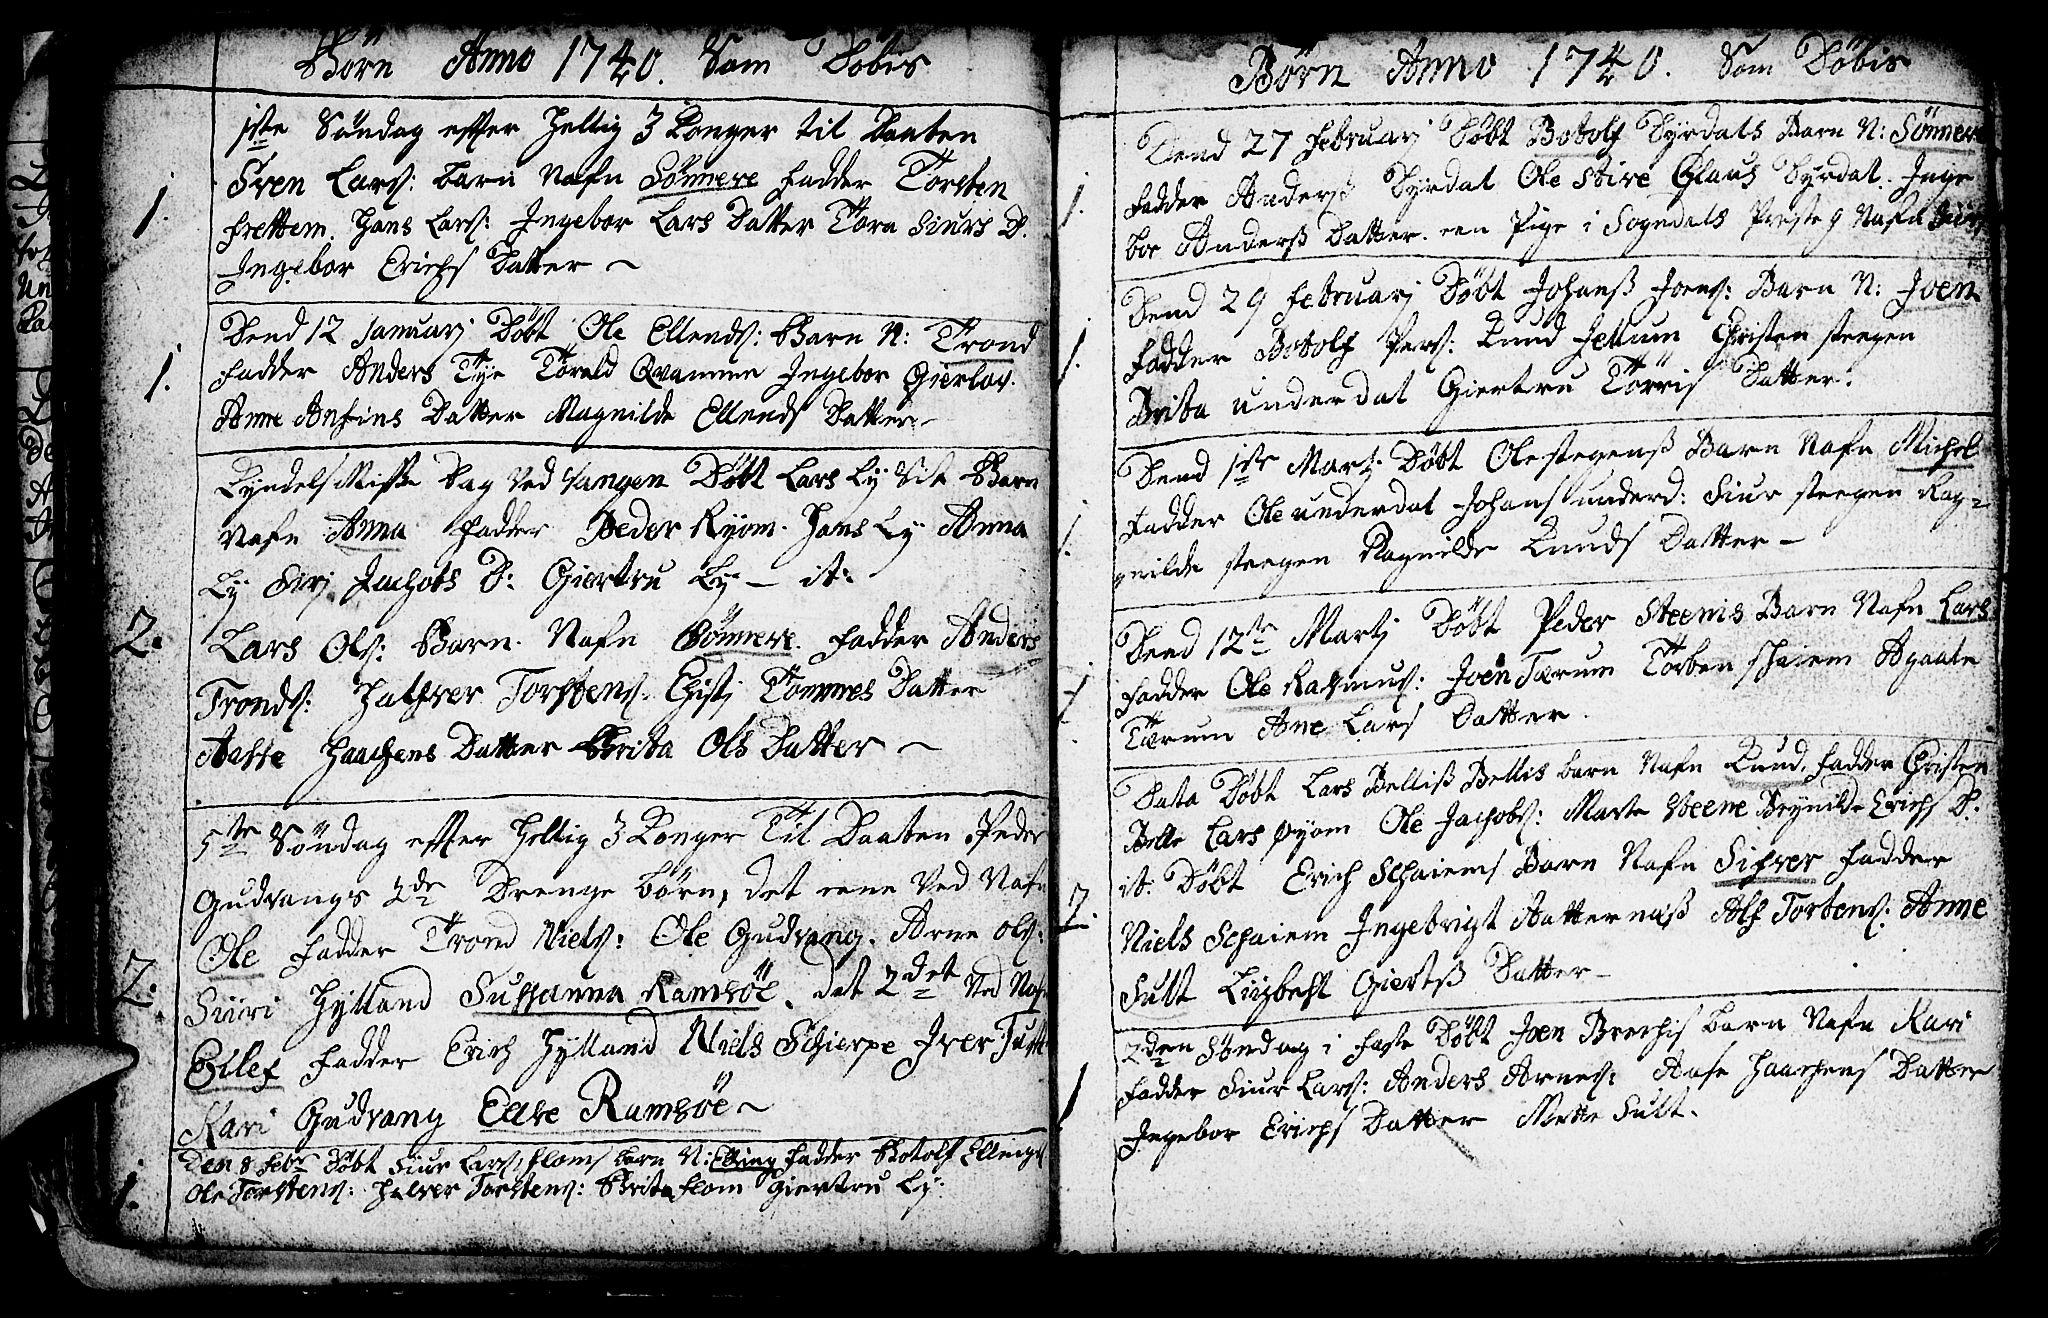 Börn Anno 1740. Som Döbis
1ste Söndag efter Hellig 3 Konger til Baaten
1. Sven Lars: barn Nafn Sönneve fadder Torsten
Frettem. Hans Lars: Ingebor Lars Datter Tora Siurs D.
Ingebor Erichs Datter ~
Dend 12 Januarj Döbt Ole Ellends: Barn N: Trond
1. fadder Anders Tye Torald Qvamme Ingebor Gierlov.
Anne Anfins Datter Magnilde Ellends Datter ~
Kyndels Misse Dag Ved Vangen Döbt Lars Ly Barn
Nafn Anna fadder Peder Ryom. Hans Ly Anna
Ly Sirj Jachobs D: Giertru Ly — it:
2. Lars Ols: Barn. Nafn Sönneve. fadder Anders
Tronds: Halfver Torstens: Chistj Tommes Datter
Aasse Haachens Datter Brita Ols Datter ~
5te Söndag efter Hellig 3 Konger Til Baaten Peder
Gudvangs 2de Drenge börn, det eene Ved Nafn
Ole fadder Trond Niels: Ole Gudvang. Arne Ols:
2. Siiri Hylland Sussanna Ramsöe. det 2det Ved Nafn
Eilef fadder Erich Hylland Niels Schierpe Iver Tuft
Kari Gudvang Else Ramsöe ~
Den 8 febr Döbt Siur Lars: flams barn N: Elling fadder Botolf Ellings
1. Ole Torstens: Halver Torstens: Brita flom Giertru Ly.
Börn Anno 1740. Som Döbis
Dend 27 februarj Döbt Botolf Dyrdals Barn N: Sönneve
1. fadder Anderß Dyrdal Ole Stive Claus Dyrdal. Inge
bor Anderß Datter. een Pige i Sogndals Præsteg Nafn Siri
Dend 29 februarj Döbt Johanß Joens: Barn N: Joen
1. Fadder Botolf Pers: Knud Jellum Christen steegen
Brita underdal Giertru Törris Datter.
Dend 1ste Martj. Döbt Ole stegenß Barn Nafn Michel
1. Fadder Ole underdal Johans underd: Siur steegen Rag-
nilde steegen Ragnilde Knuds Datter —
Dend 12te Martj Döbt Peder Steenis Barn Nafn Lars
1. fadder Ole Rasmus: Joen Tærum Torben schaiem Agaata
Tærum Ane Lars Datter.
Data Döbt Lars Belliß Bellis barn Nafn Knud. fadder Christen
Belle Lars öyom Ole Jachobs: Marte Steene Breynilde Erichs D:
it. Döbt Erich Schaiems Barn Nafn Sifver fadder
2. Niels Schaiem Ingebrigt Natternæß Alf Torbens: Anne
Sult Lizbeth Giertß Datter —
2den Söndag i faste Döbt Joen Brechis barn Nafn Kari
1 fadder Siur Lars: Anders Arnes: Aase Haachens Datter
Ingebor Erichs Datter Mette Sult.